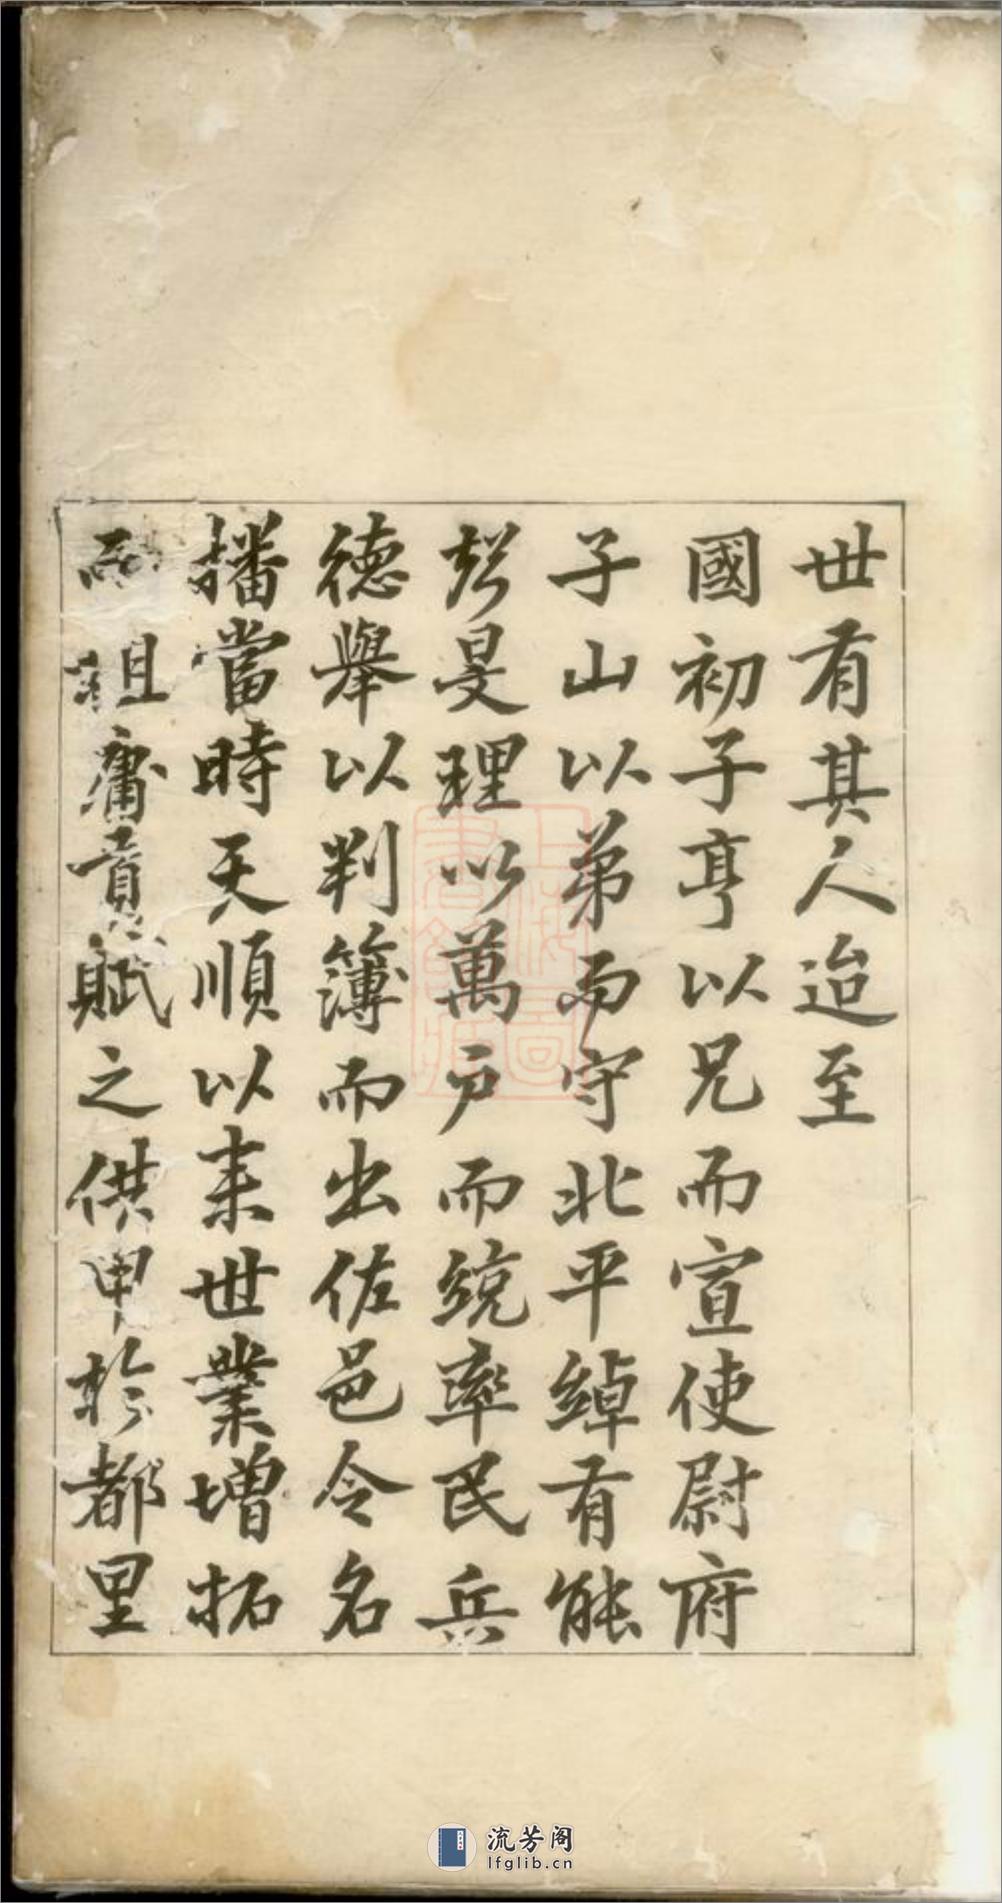 世有其人迨至
國初子亨以兄而宣使尉府
子山以弟而守北平綽有能
旻理以萬戶而統率民兵
德舉以判簿而出佐邑令名
播當時天順以來世業增拓
而租庸貢賦之供甲於都里
上海圖書館藏
流芳阁
lfglib.cn